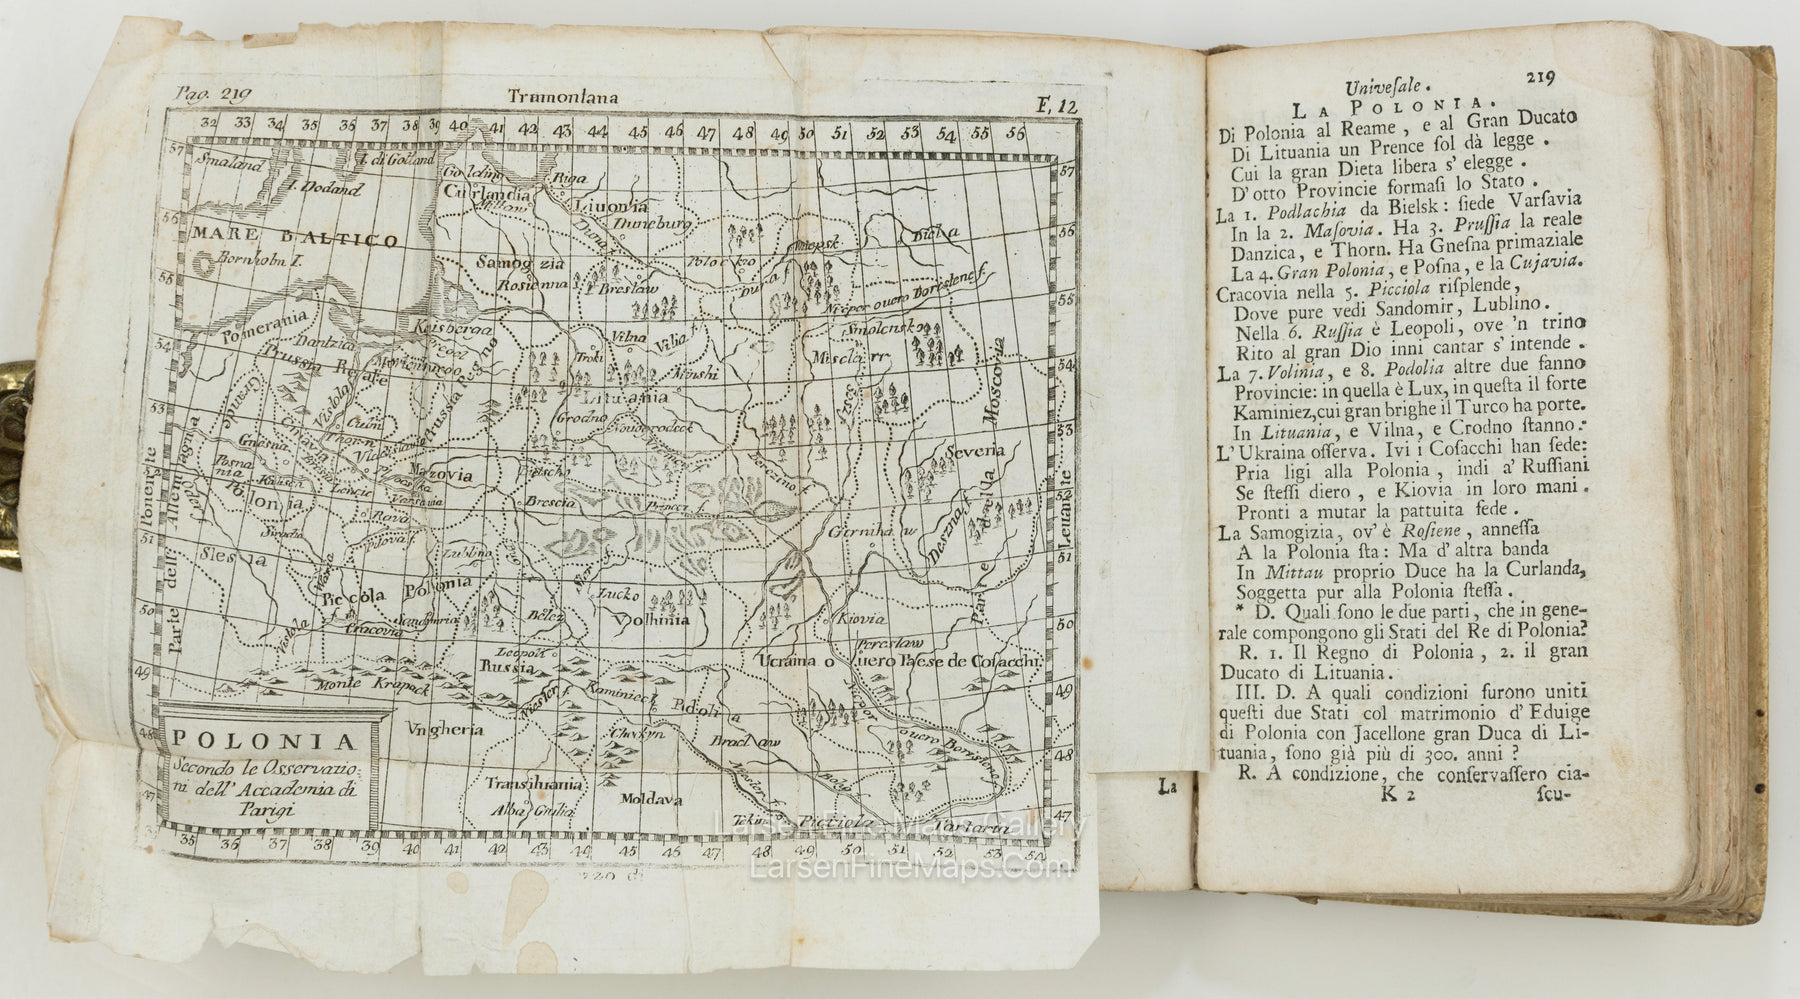 Pag. 219
Tramontana
F. 12
32 33 34 35 36 37 38 39 40 41 42 43 44 45 46 47 48 49 50 51 52 53 54 55 56
57
57
Smaland
I. di Gotland
I. Dodand
Goldino
Riga
Curlandia
Mittaw
Liuonia
Duneburg
Duna
56
56
MARE BALTICO
Bornholm I.
Samogizia
Rosienna
Breslaw
Polocko
Witepsk
Biela
Duna f.
Nieper ouero Boristene f.
55
55
Pomerania
Dantzica
Konisberga
Pregel
Prussia Reale
Marienburgo
Prussia Regno
Troki
Vilna
Vilia f.
Minski
Smolensko
Miscla
54
54
Grande
Vistola
Culm
Thorn
Lituania
Grodno
Nouogrodeck
Moscovia
53
53
Ponente
Parte dell' Allemagna
Leuante
Gnesna
Cuiavia
Posnania
Polonia
Lencic
Mazovia
Varsavia
Rava
Bielscho
Brescia
Severia
Berezino f.
52
52
Siradia
Slesia
Lublino
Czernihaw
Deszna f.
Parte della
51
51
Piccola Polonia
Cracovia
Sandomiria
Vistola
Belcz
Lucko
Volhinia
Kiovia
50
50
Leopoli
Russia
Pereslaw
Ucraina o uero Paese de Cosacchi
Monte Krapack
Niester f.
Kaminieck
Podolia
Nieper
ouero Boristene f.
49
49
Vngheria
Chockyn
Braclaw
Niester f.
Bog f.
48
48
POLONIA
Secondo le Osservatio-
ni dell' Accademia di
Parigi
Transiluania
Alba Giulia
Moldava
Tekin
Picciola Tartaria
47
47
35 36 37 38 39 40 41 42 43 44 45 46 47 48 49 50 51 52 53 54
Larsen Fine Maps Gallery
LarsenFineMaps.Com
La
Univesale.
219
LA POLONIA.
Di Polonia al Reame, e al Gran Ducato
Di Lituania un Prence sol dà legge.
Cui la gran Dieta libera s' elegge.
D'otto Provincie formasi lo Stato.
La 1. Podlachia da Bielsk: siede Varsavia
In la 2. Masovia. Ha 3. Prussia la reale
Danzica, e Thorn. Ha Gnesna primaziale
La 4. Gran Polonia, e Posna, e la Cujavia.
Cracovia nella 5. Picciola risplende,
Dove pure vedi Sandomir, Lublino.
Nella 6. Russia è Leopoli, ove 'n trino
Rito al gran Dio inni cantar s' intende.
La 7. Volinia, e 8. Podolia altre due fanno
Provincie: in quella è Lux, in questa il forte
Kaminiez, cui gran brighe il Turco ha porte.
In Lituania, e Vilna, e Crodno stanno.
L'Ukraina osserva. Ivi i Cosacchi han sede:
Pria ligi alla Polonia, indi a' Russiani
Se stessi diero, e Kiovia in loro mani.
Pronti a mutar la pattuita fede.
La Samogizia, ov' è Rosiene, annessa
A la Polonia sta: Ma d' altra banda
In Mittau proprio Duce ha la Curlanda,
Soggetta pur alla Polonia stessa.
* D. Quali sono le due parti, che in gene-
rale compongono gli Stati del Re di Polonia?
R. 1. Il Regno di Polonia, 2. il gran
Ducato di Lituania.
III. D. A quali condizioni furono uniti
questi due Stati col matrimonio d' Eduige
di Polonia con Jacellone gran Duca di Li-
tuania, sono già più di 300. anni?
R. A condizione, che conservassero cia-
K 2
scu-